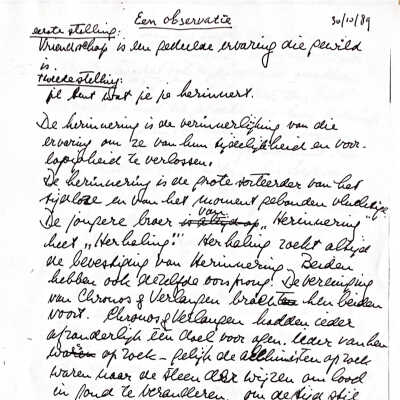 Een observatie 30/10/89
eerste stelling:
Vriendschap is een gedeelde ervaring die gewild
is.
tweede stelling:
je bent wat je je herinnert.
De herinnering is de verinnerlijking van die
ervaring om ze van hun tijdelijkheid en voor-
lopigheid te verlossen.
De herinnering is de grote sorteerder van het
tijdloze en van het moment gebonden vluchtige.
De jongere broer van "Herinnering"
heet "Herhaling". Herhaling zoekt altijd
de bevestiging van Herinnering. Beiden
hebben ook dezelfde oorsprong. De vereniging
van Chronos & Verlangen brachten hen beiden
voort. Chronos & Verlangen hadden ieder
afzonderlijk één doel voor ogen. Ieder van hen
waren op zoek - gelijk de alchimisten op zoek
waren naar de steen der wijzen om lood
in goud te veranderen, om de tijd stil